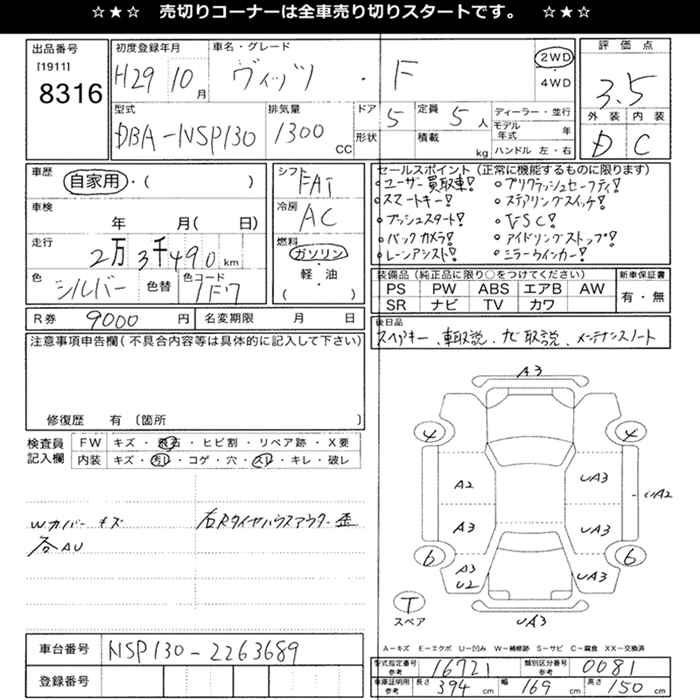 ☆★☆ 売切りコーナーは全車売り切りスタートです。 ☆★☆
出品番号 [1911] 8316
初度登録年月 H29 10月
車名・グレード ヴィッツ ・ F
2WD ・ 4WD
評価点 3.5
外装 内装
D C
型式 DBA-NSP130
排気量 1300 CC
ドア 5 形状
定員 5人
積載 kg
ディーラー・並行
モデル年式 年
ハンドル 左・右
車歴 自家用・( )
車検 年 月( 日)
走行 2万3千490km
色 シルバー 色替
色コード 1F7
シフト FAT
冷房 AC
燃料 ガソリン・軽・油 ( )
セールスポイント(正常に機能するものに限ります)
◦ユーザー買取車! ◦プリクラッシュセーフティ!
◦スマートキー! ◦ステアリングスイッチ!
◦プッシュスタート! ◦VSC!
◦バックカメラ! ◦アイドリングストップ!
◦レーンアシスト! ◦ミラーウインカー!
装備品(純正品に限り○をつけてください)
PS PW ABS エアB AW
SR ナビ TV カワ
新車保証書 有・無
R券 9000円
名変期限 月 日
後日品
スペアキー、車取説、ナビ取説、メンテナンスノート
注意事項申告欄(不具合内容等は具体的に記入して下さい)
修復歴 有〔箇所 〕
検査員記入欄
FW キズ・飛石・ヒビ割・リペア跡・X要
内装 キズ・汚レ・コゲ・穴・スレ・キレ・破レ
Wカバーキズ
各AU
右Rタイヤハウスアウター歪
A3
4 4
A2 UA3 UA2
A3 UA3
6 6
A3 U2 UA3
T スペア
UA3
A―キズ E―エクボ U―凹み W―補修跡 S―サビ C―腐食 XX―交換済
車台番号 NSP130-2263689
登録番号
型式指定番号 参考 16721
類別区分番号 参考 0081
車庫証明用 参考 長さ 394cm 幅 169cm 高さ 150cm